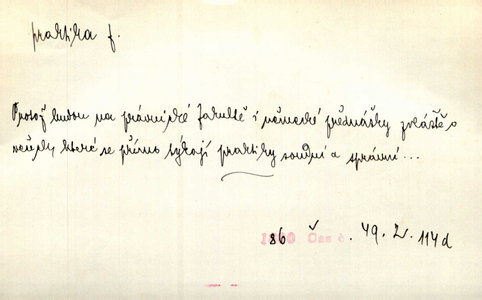 praktika f.
Protož budou na právnické fakultě i německé přednášky zvláště o
které se přímo týkají praktiky soudní a správní...
86 Č. 49. 2. 114d